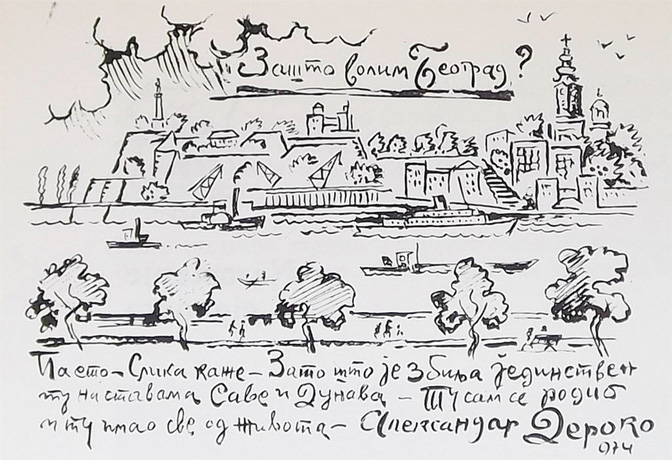 Зашто волим Београд?
Па ето – Слика каже – Зато што је збиља јединствен
ту на ставама Саве и Дунава – Ту сам се родио
и ту имао све од живота – Александар Дероко
974